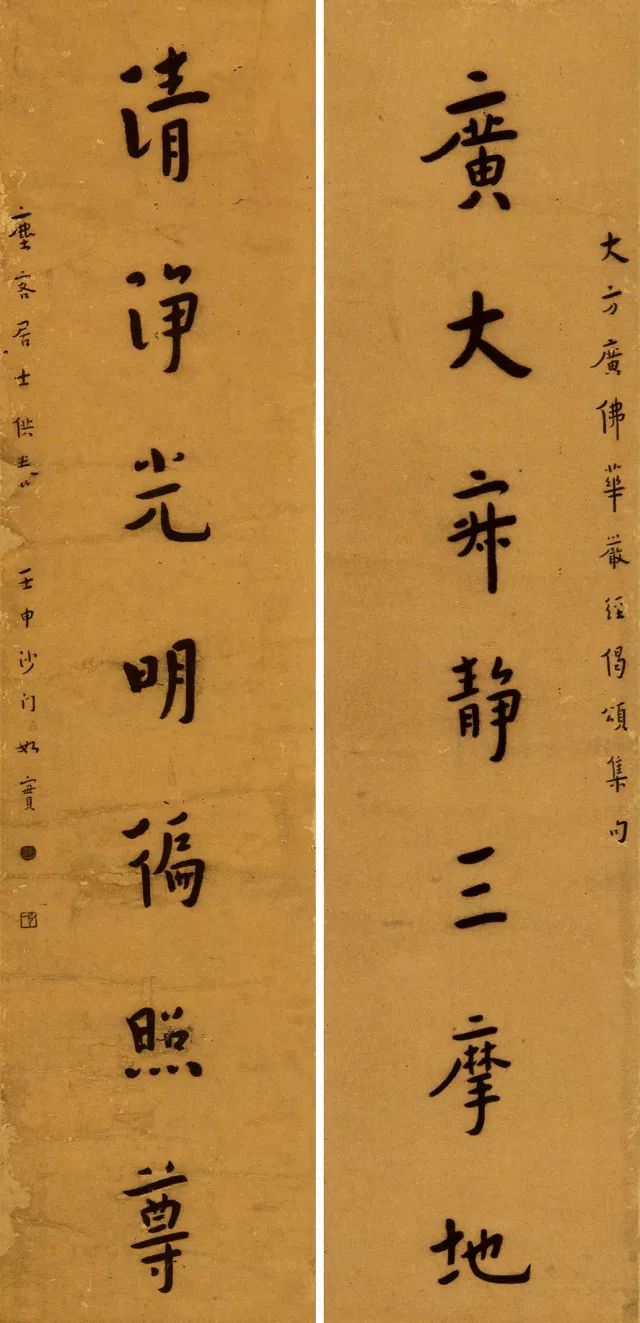 大方廣佛華嚴經偈頌集句
廣大寂静三摩地
清淨光明徧照尊
塵客居士供養 壬申沙门如實